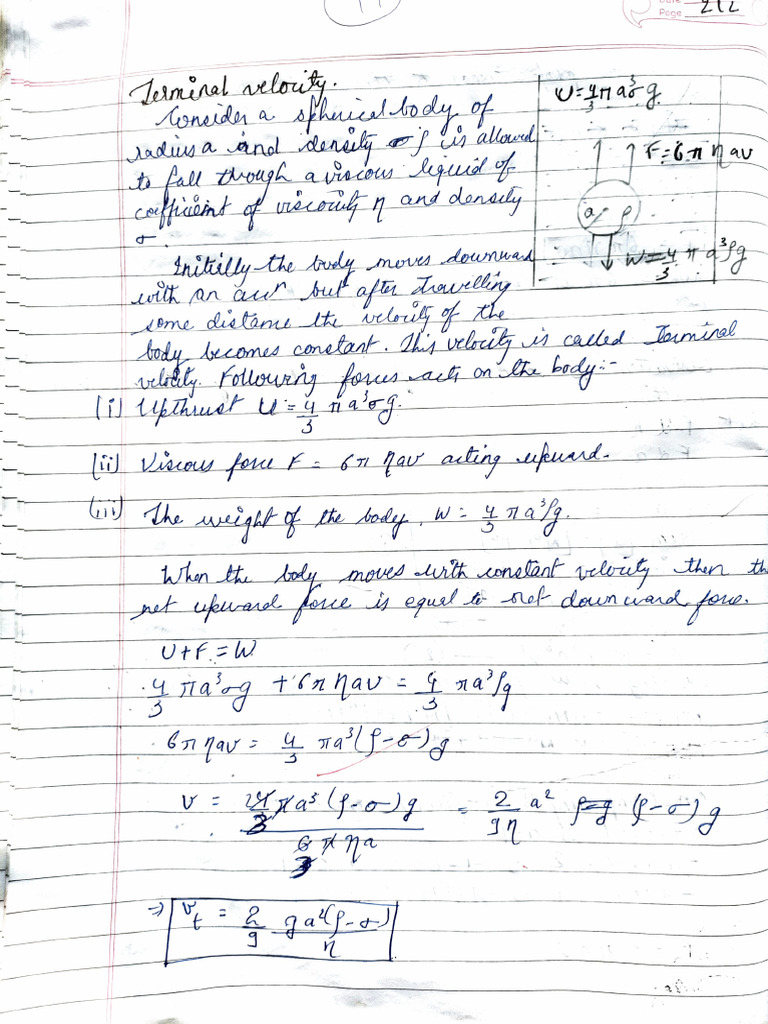 Page 212
Terminal velocity.
Consider a spherical body of
radius a and density ρ is allowed
to fall through a viscous liquid of
coefficient of viscosity η and density
σ.
U = 4/3 πa³σg.
F = 6π η av
a ρ
W = 4/3 π a³ρg
Initially the body moves downward
with an accⁿ but after travelling
some distance the velocity of the
body becomes constant. This velocity is called Terminal
velocity. Following forces acts on the body:-
(i) Upthrust U = 4/3 π a³σg.
(ii) Viscous force F = 6π ηav acting upward.
(iii) The weight of the body, W = 4/3 π a³ρg.
When the body moves with constant velocity then the
net upward force is equal to net downward force.
U+F = W
4/3 πa³σg + 6π ηav = 4/3 πa³ρg
6π ηav = 4/3 πa³(ρ-σ)g
v = 4/3 πa³ (ρ-σ)g / 6π ηa = 2/9η a² (ρ-σ) g
⇒ v_t = 2/9 ga²(ρ-σ)/η